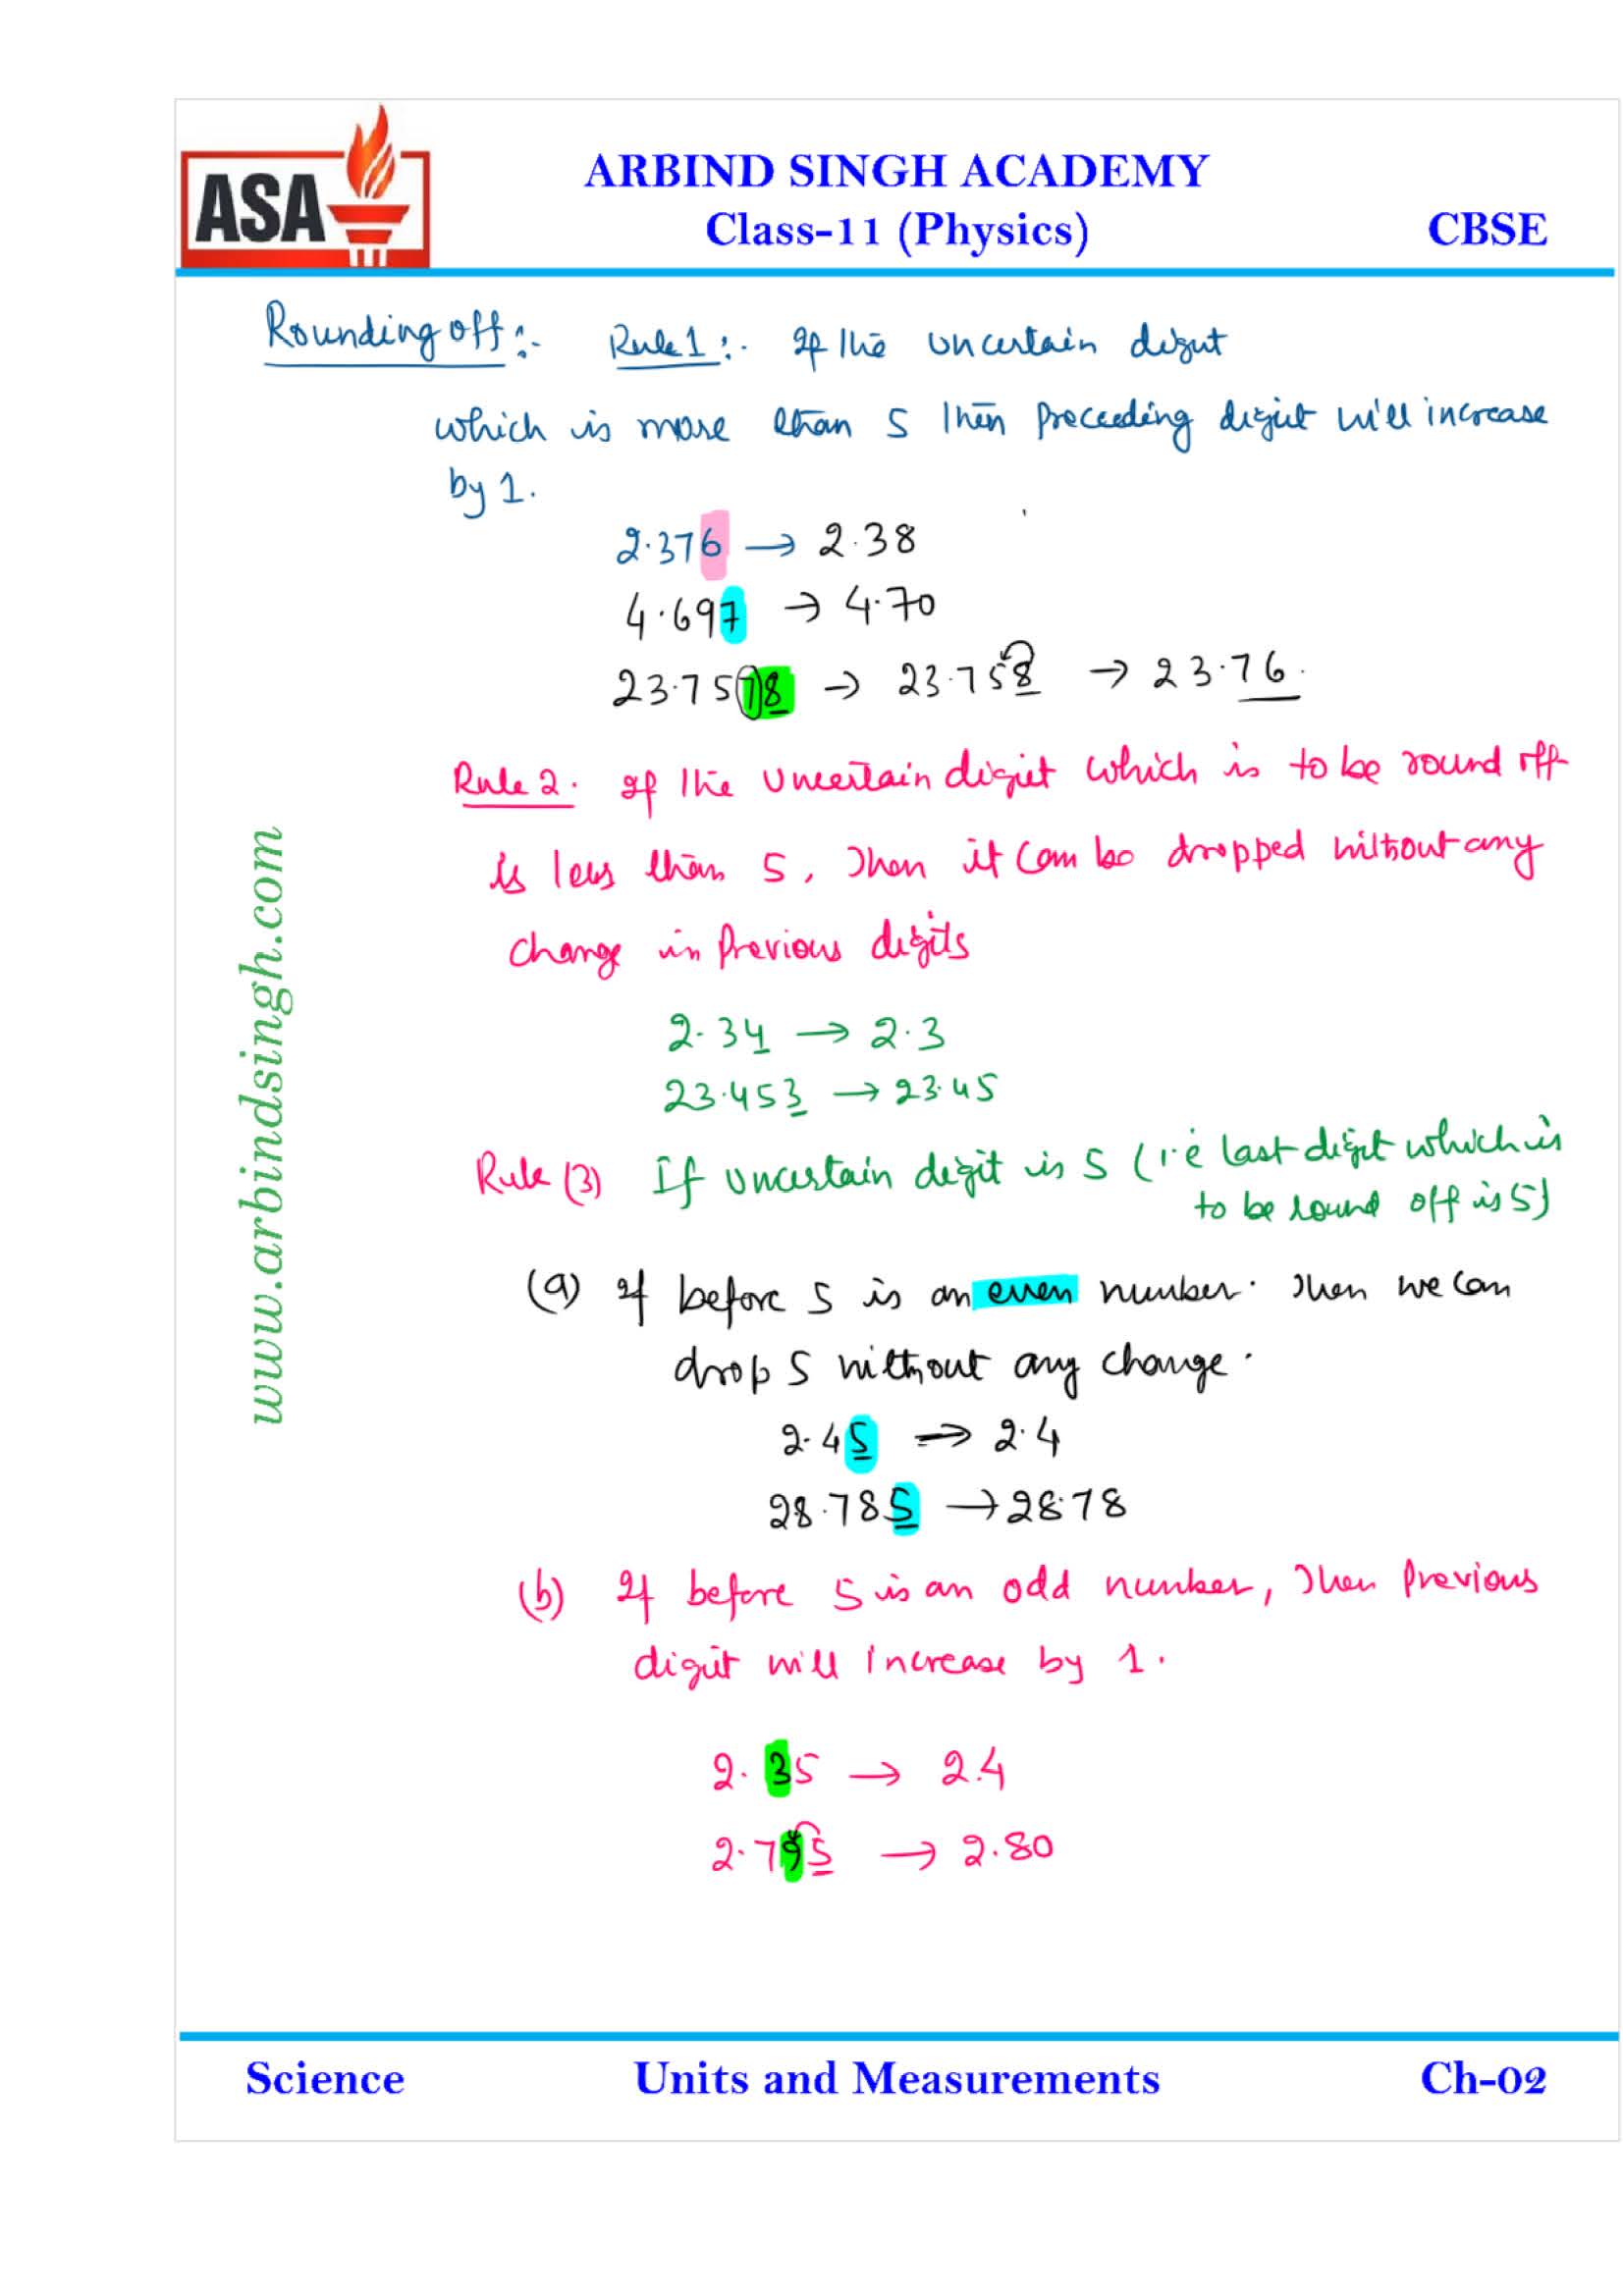 ASA
ARBIND SINGH ACADEMY
Class-11 (Physics) CBSE
Rounding off :- Rule 1 :- If the uncertain digit
which is more than 5 then preceeding digit will increase
by 1.
2.376 → 2.38
4.697 → 4.70
23.7578 → 23.758 → 23.76.
Rule 2. If the uncertain digit which is to be round off
is less than 5, then it can be dropped without any
change in previous digits
2.34 → 2.3
23.453 → 23.45
Rule (3) If uncertain digit is 5 (i.e last digit which is
to be round off is 5)
(a) If before 5 is an even number. Then we can
drop 5 without any change.
2.45 → 2.4
28.785 → 28.78
(b) If before 5 is an odd number, then previous
digit will increase by 1.
2.35 → 2.4
2.795 → 2.80
www.arbindsingh.com
Science Units and Measurements Ch-02